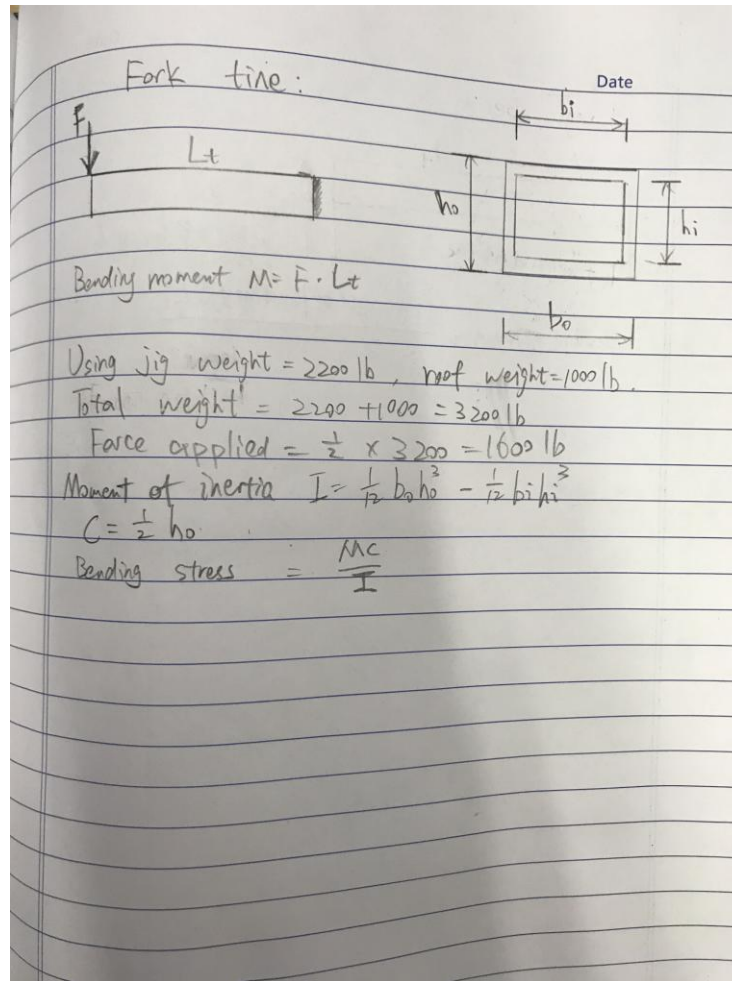 Fork tine:
Date
F
Lt
bi
ho
hi
bo
Bending moment M= F · Lt
Using jig weight = 2200 lb, roof weight=1000 lb.
Total weight = 2200 +1000 = 3200 lb
Force applied = 1/2 × 3200 = 1600 lb
Moment of inertia I = 1/12 bo ho³ - 1/12 bi hi³
C = 1/2 ho
Bending stress = MC/I